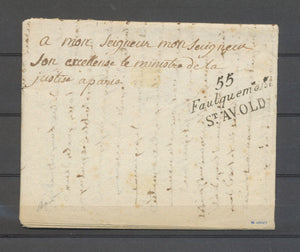 a mon seigneur mon seigneur
son excellense le ministre de la
justise a paris
55
Faulquemont
ST AVOLD